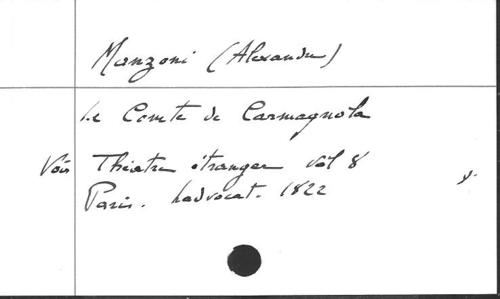 Manzoni (Alexandre)
Le Comte de Carmagnola
Voir Théatre étranger vol 8
Paris. Ladvocat. 1822